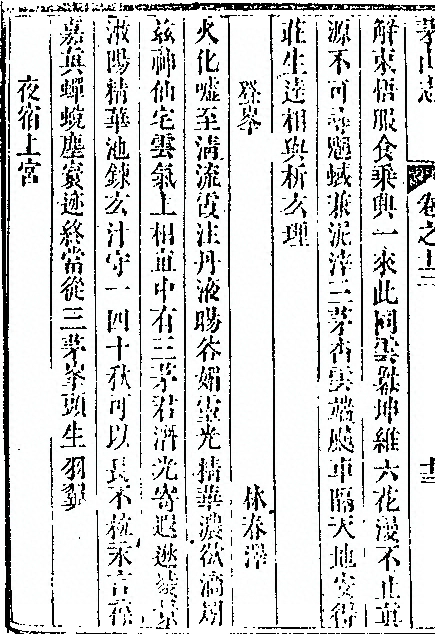 茅山志 卷之十三 十二
解束悟服食乘興一來此同雲黯坤維六花漫不止真
源不可尋題蛾兼泥滓三茅杳雲端飈車隔天地安得
莊生達相與析玄理
登峯 林春澤
火化噓至清流霞注丹液暘谷媚靈光精華濃欲滴剏
茲神仙宅雲氣上相直中有三茅君潛光寄遐逖
淑陽精華池鍊玄汁守一四十秋可以長不粒末言存
嘉真蟬蛻塵寰迹終當從三茅峯頭生羽翼
夜宿上宮